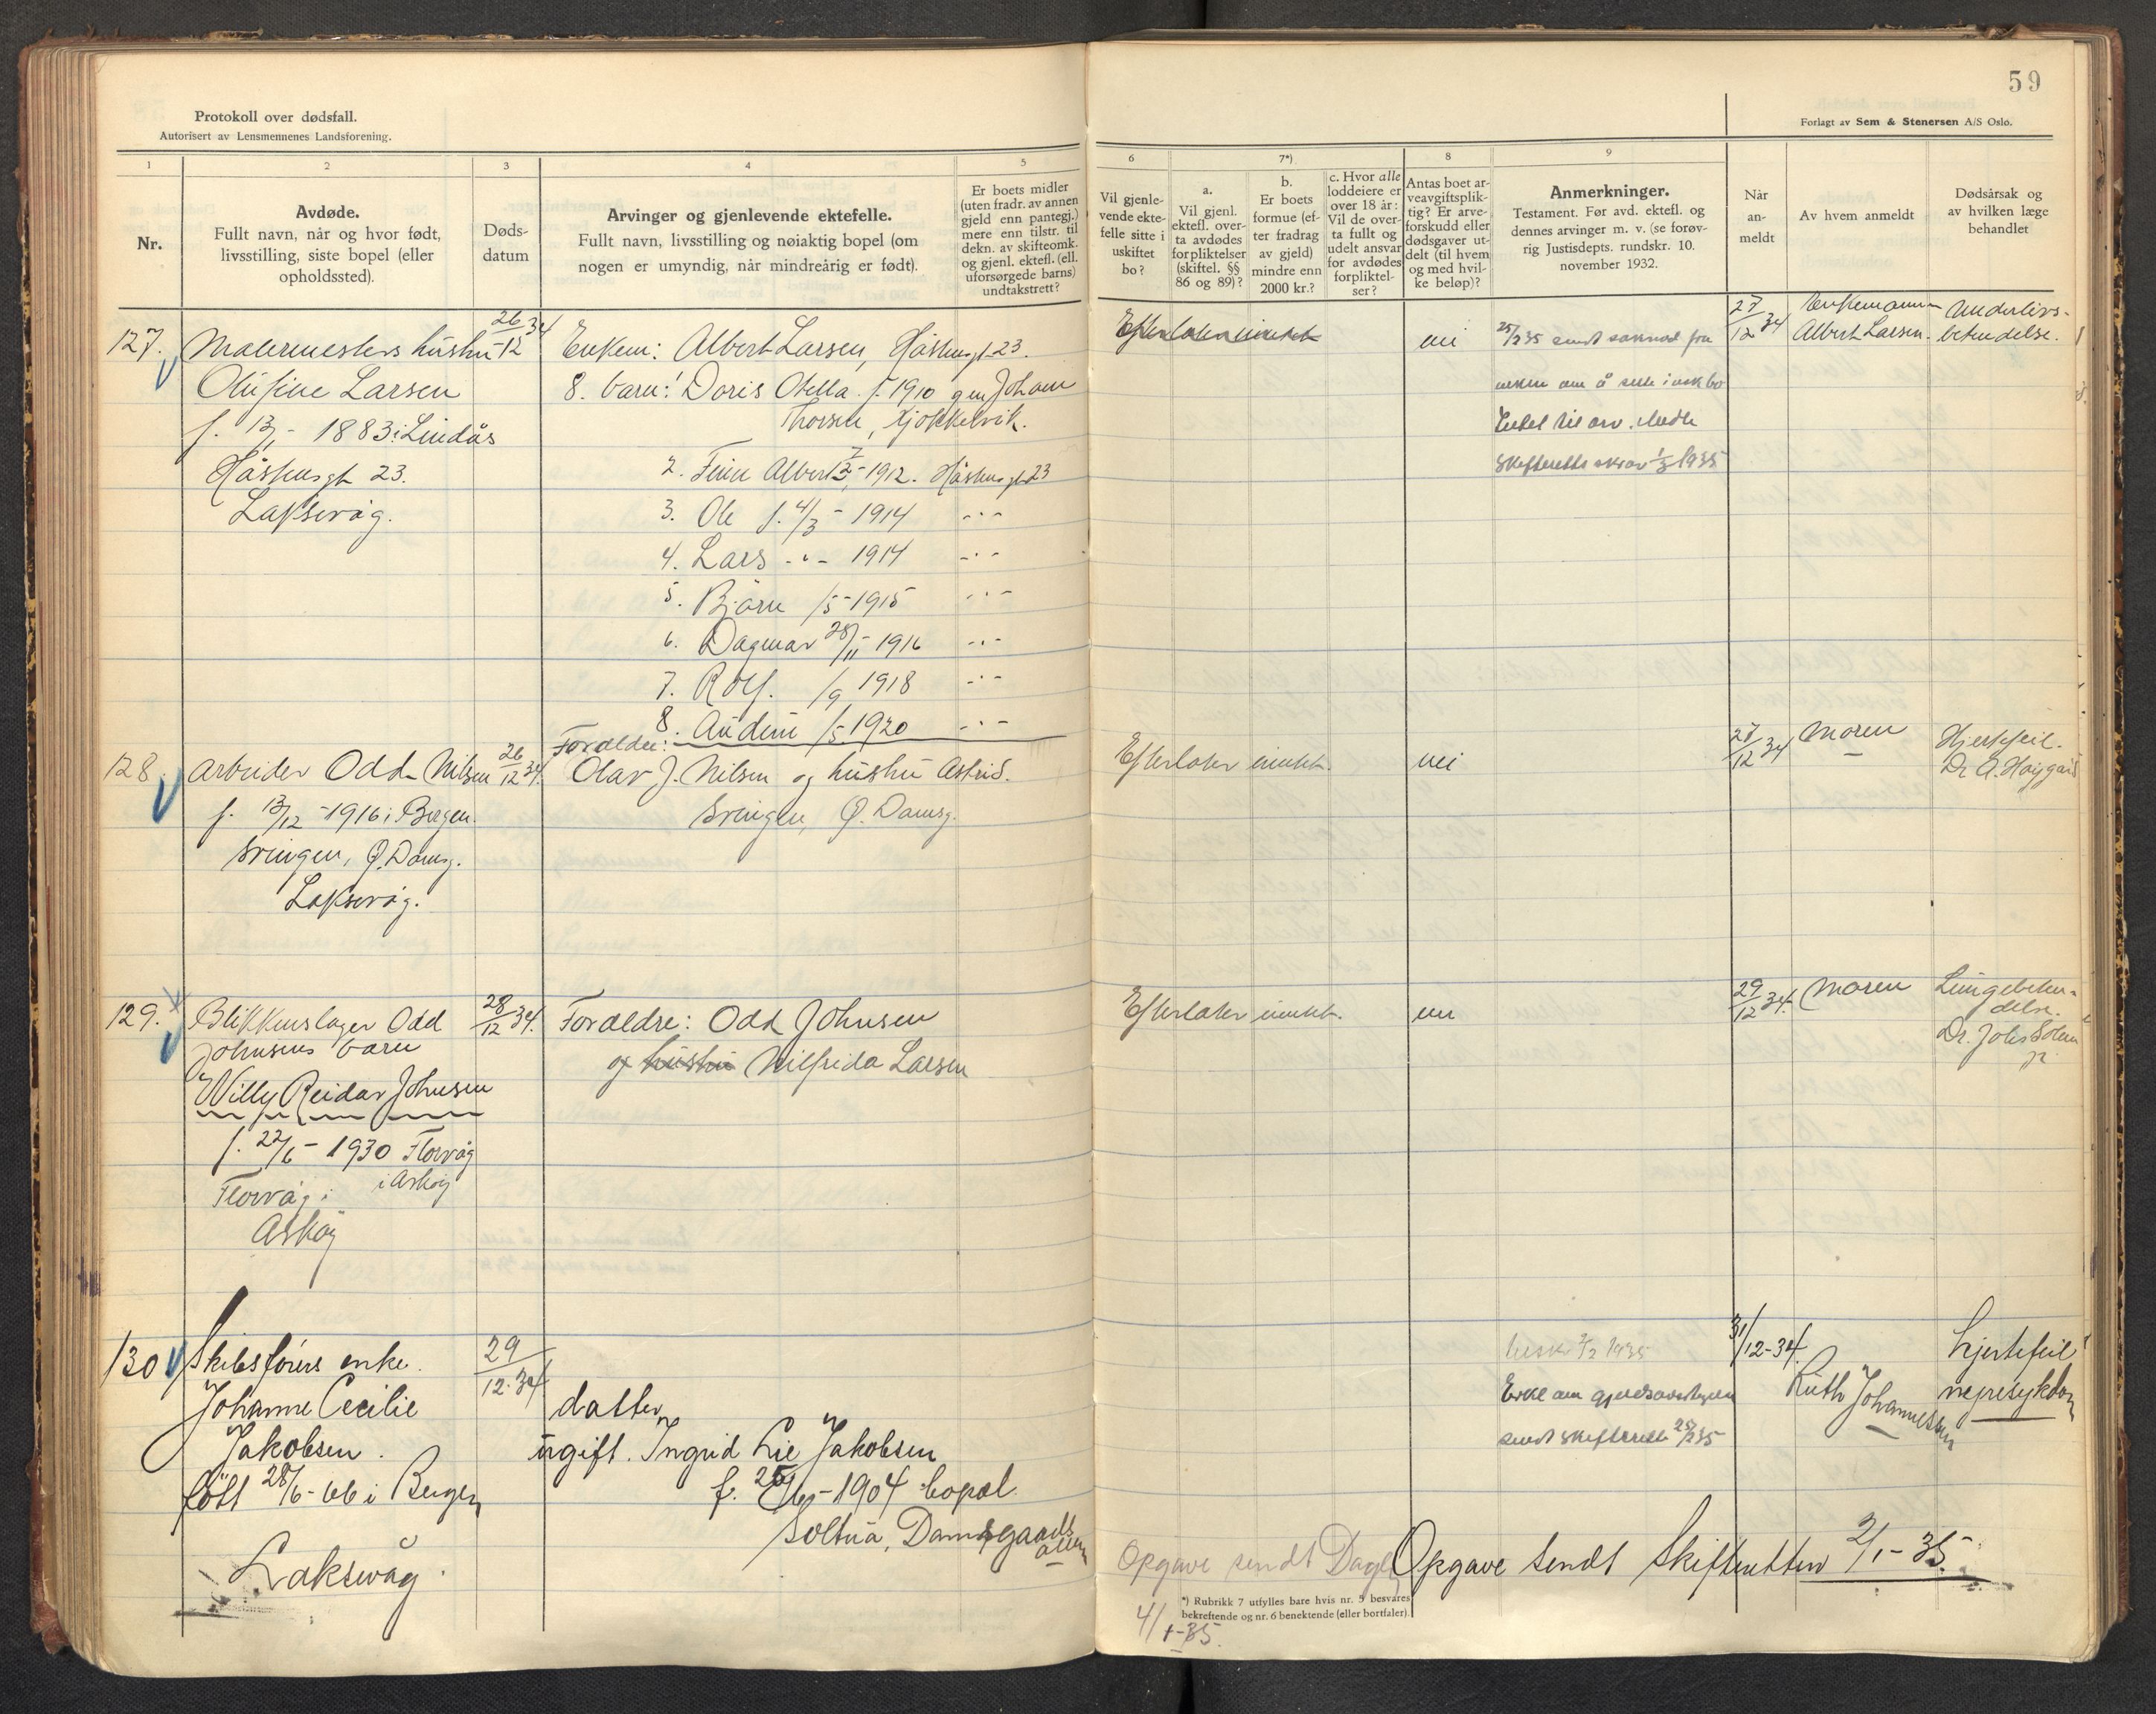 59
Protokoll over dødsfall.
Autorisert av Lensmennenes Landsforening.
Forlagt av Sem & Stenersen A/S Oslo.
1
2
3
4
5
6
7*)
8
9
Nr.
Avdøde.
Fullt navn, når og hvor født,
livsstilling, siste bopel (eller
opholdssted).
Døds-
datum
Arvinger og gjenlevende ektefelle.
Fullt navn, livsstilling og nøiaktig bopel (om
nogen er umyndig, når mindreårig er født).
Er boets midler
(uten fradr. av annen
gjeld enn pantegj.)
mere enn tilstr. til
dekn. av skifteomk.
og gjenl. ektefl. (ell.
uforsørgede barns)
undtakstrett?
Vil gjenle-
vende ekte-
felle sitte i
uskiftet
bo?
a.
Vil gjenl.
ektefl. over-
ta avdødes
forpliktelser
(skiftel. §§
86 og 89)?
b.
Er boets
formue (ef-
ter fradrag
av gjeld)
mindre enn
2000 kr.?
c. Hvor alle
loddeiere er
over 18 år:
Vil de over-
ta fullt og
udelt ansvar
for avdødes
forpliktel-
ser?
Antas boet ar-
veavgiftsplik-
tig? Er arve-
forskudd eller
dødsgaver ut-
delt (til hvem
og med hvil-
ke beløp)?
Anmerkninger.
Testament. Før avd. ektefl. og
dennes arvinger m. v. (se forøv-
rig Justisdepts. rundskr. 10.
november 1932.
Når
an-
meldt
Av hvem anmeldt
Dødsårsak og
av hvilken læge
behandlet
127.
Malermesters hustru
Olufine Larsen
f. 13/1 - 1883 i Lindås
Håsthusgt 23.
Laksevåg.
26/12 34
Enkem: Albert Larsen, Håsthusgt 23.
8. barn: Doris Otella f. 1910 gm Johan
Thorsen, Kjøkkelvik.
2. Finn Albert 7/12 - 1912. Håsthusgt 23
3. Ole f. 4/3 - 1914 -"-
4. Lars -"- 1914 -"-
5. Bjarne /5 - 1915 -"-
6. Dagmar 28/11 - 1916 -"-
7. Rolf. /9 1918 -"-
8. Audun /5 - 1920 -"-
Efterlater intet
nei
25/2 35 sendt søknad fra
om å sitte i uskbo
skifteretts skriv 1/3 1935
27/12 34
Enkemann
Albert Larsen.
Underlivs-
betendelse.
128.
Arbeider Odd Nilsen
f. 13/12 - 1916 i Bergen.
Svingen, Ø. Damsg.
Laksevåg.
26/12 34.
Foreldre:
Olav J. Nilsen og hustru Astrid.
Svingen, Ø. Damsg.
Efterlater intet.
nei
27/12 34
Moren
Hjertefeil.
Dr A. Høygård
129.
Blikkenslager Odd
Johnsens barn
Willy Reidar Johnsen
f. 22/6 - 1930 Florvåg
i Askøy
Florvåg i
Askøy
28/12 34.
Foreldre: Odd Johnsen
og hustru Wilfrida Larsen
Efterlater intet.
nei
29/12 34.
Moren
Lungebeten-
delse.
Dr. Johs
jr.
130
Skibsførers enke.
Johanne Cecilie
Jakobsen.
født 28/6 - 66 i Bergen
Laksevåg.
29/12-34
datter
ugift. Ingrid Lie Jakobsen
f. 25/6 - 1904 bopæl
Soltua, Damsgaards
alleen
1935
Erkl om gjeldsovertagelse
sendt skifterett 25/2 35
31/12-34.
Ruth Johannessen
hjertefeil
nyresykdom
Opgave sendt Dagl
4/1-35.
Opgave sendt Skifteretten 2/1-35.
*) Rubrikk 7 utfylles bare hvis nr. 5 besvares
bekreftende og nr. 6 benektende (eller bortfaler).